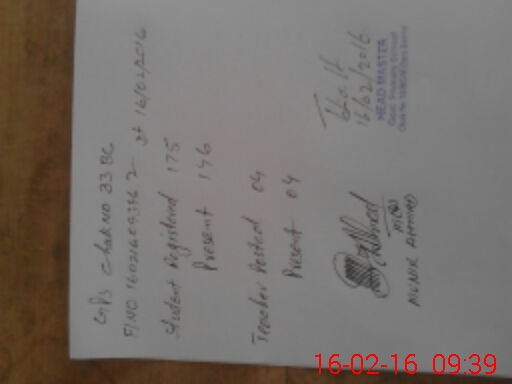 GPS Chak NO 33 BC
at 16/02/2016
Student Registered 175
Present 146
Teacher Posted 04
Present 04
16/02/2016
HEAD MASTER
Govt. Primary School
MUNIR AHMAD
16-02-16 09:39